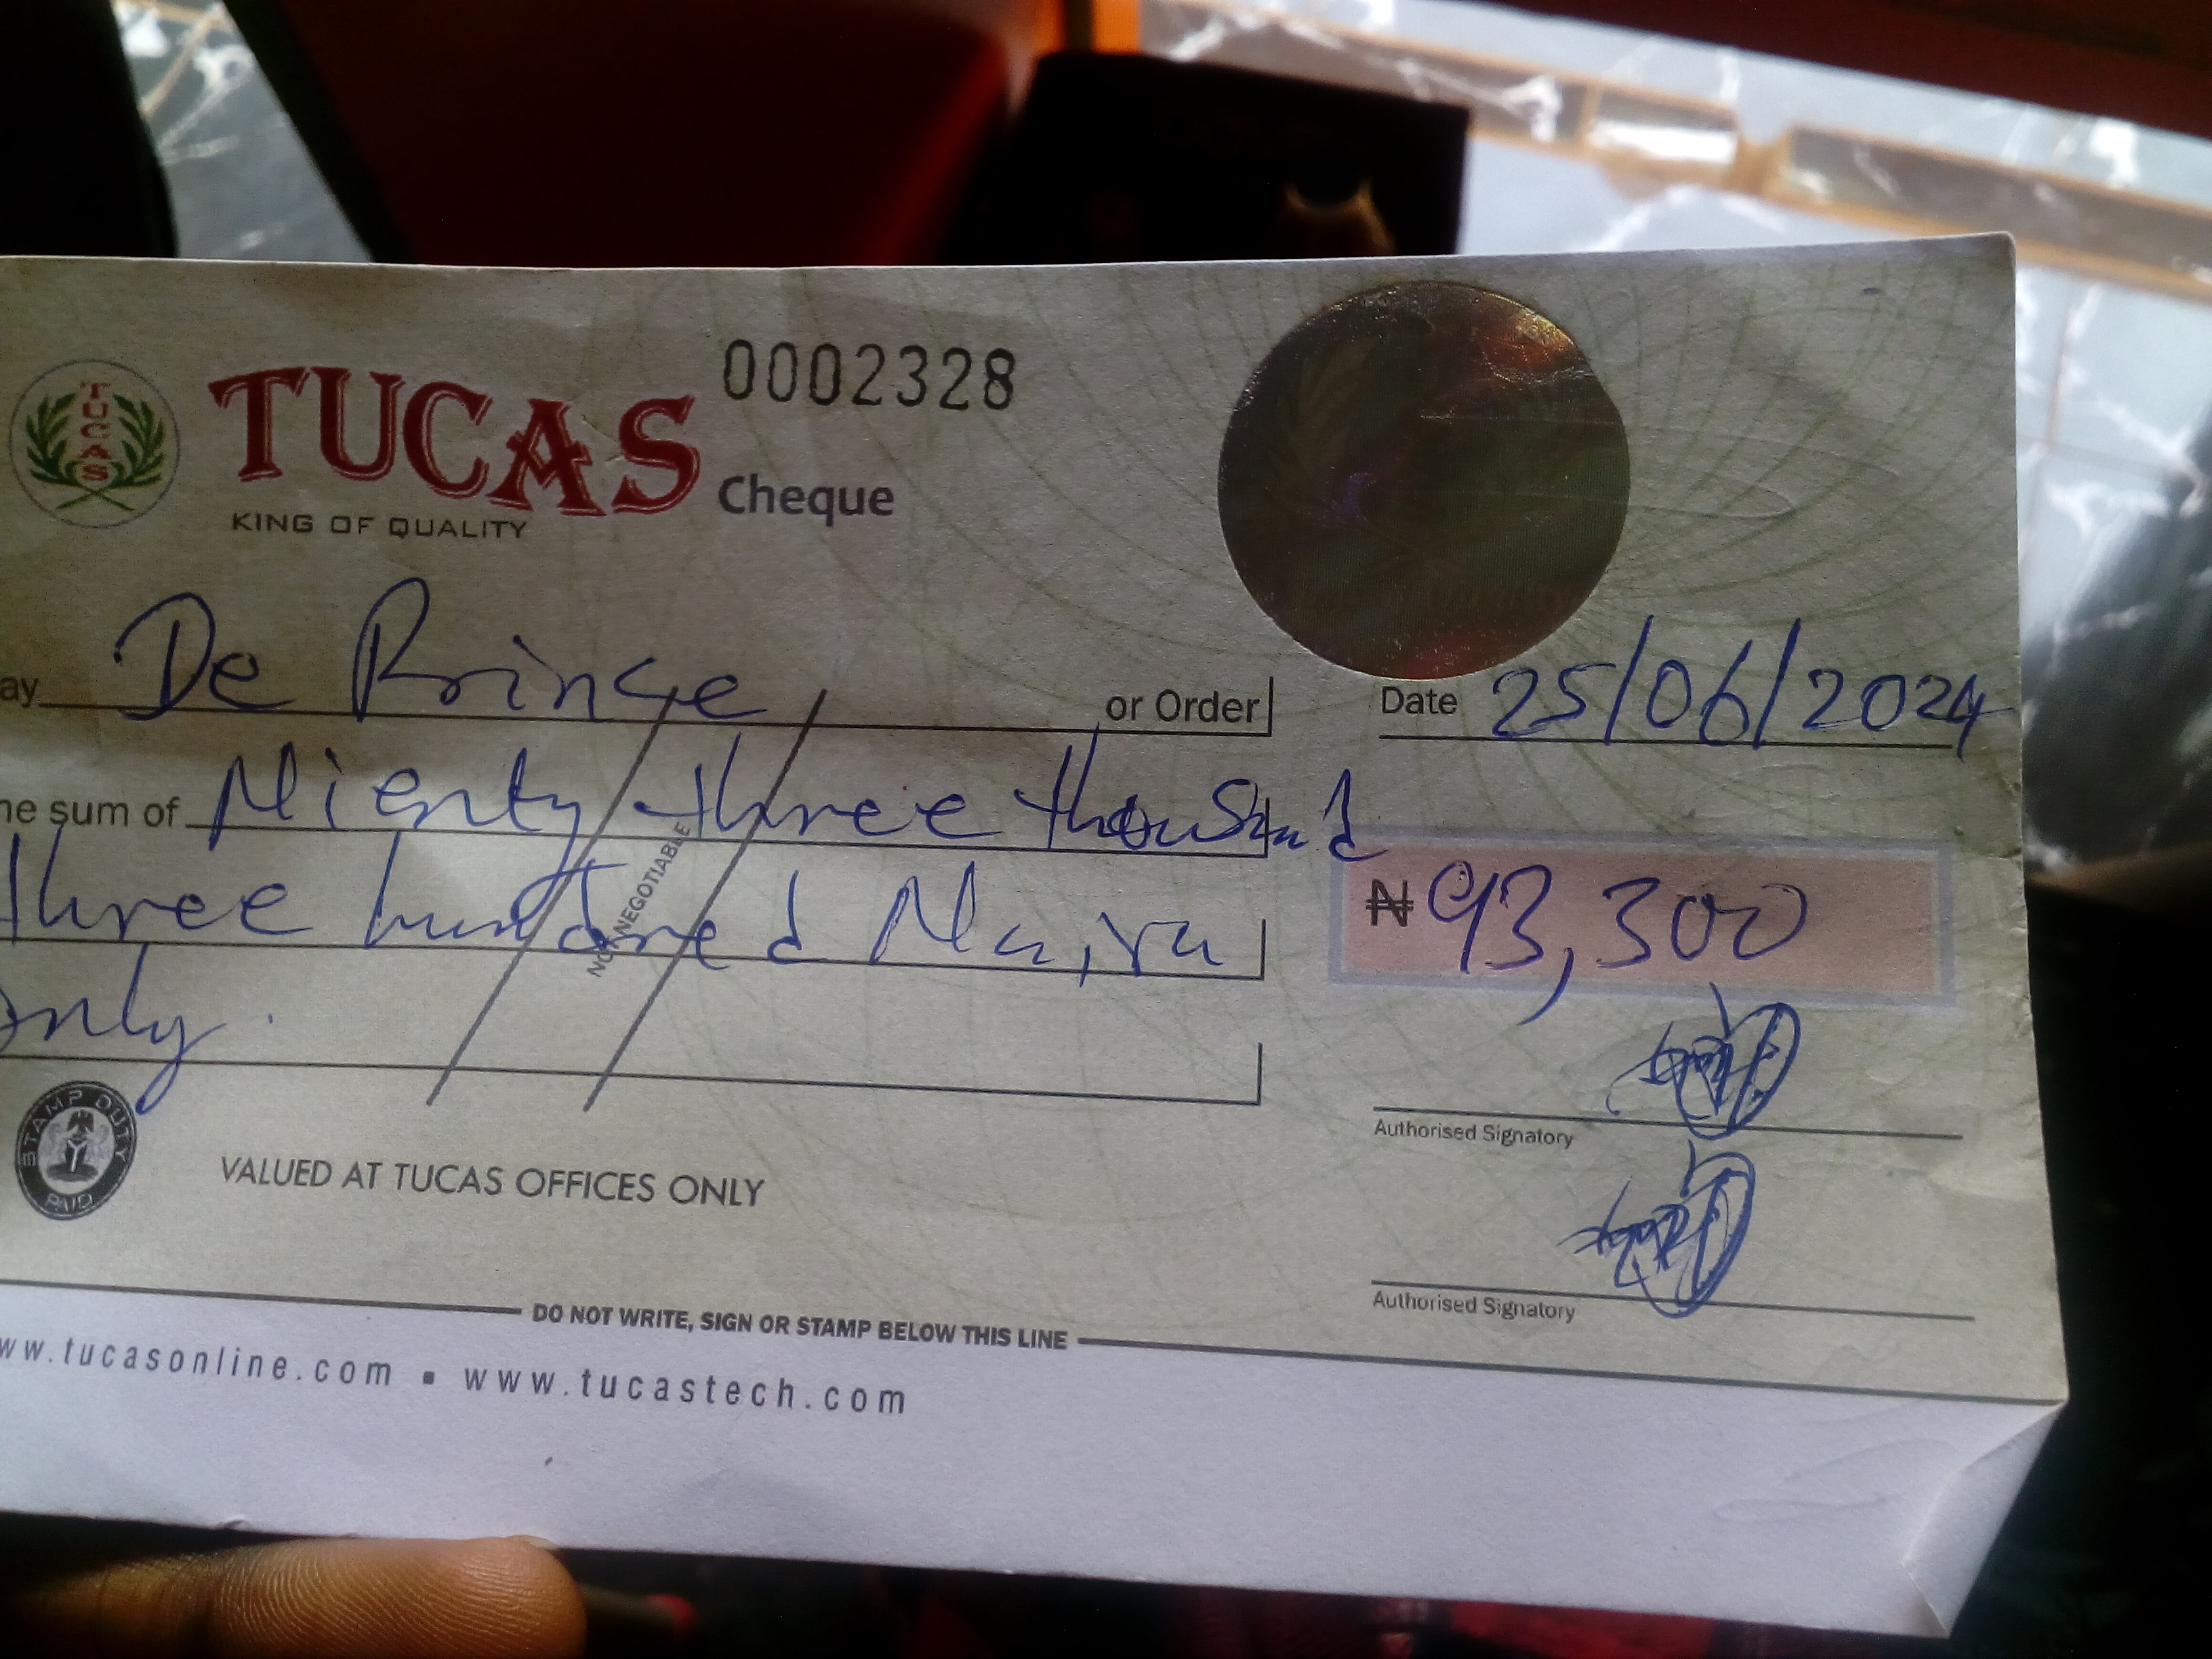 0002328
TUCAS
TUCAS Cheque
KING OF QUALITY
ay De Prince or Order
Date 25/06/2024
he sum of Nienty three thousand
three hundred Naira
₦ 93,300
only.
NOT NEGOTIABLE
Authorised Signatory
STAMP DUTY
PAID
VALUED AT TUCAS OFFICES ONLY
Authorised Signatory
DO NOT WRITE, SIGN OR STAMP BELOW THIS LINE
ww.tucasonline.com ▪ www.tucastech.com